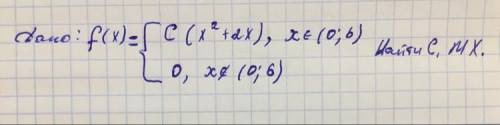 Дано: f(x)= { C (x²+2x), x∈(0;6)
0, x∉(0;6)
Найти C, MX.